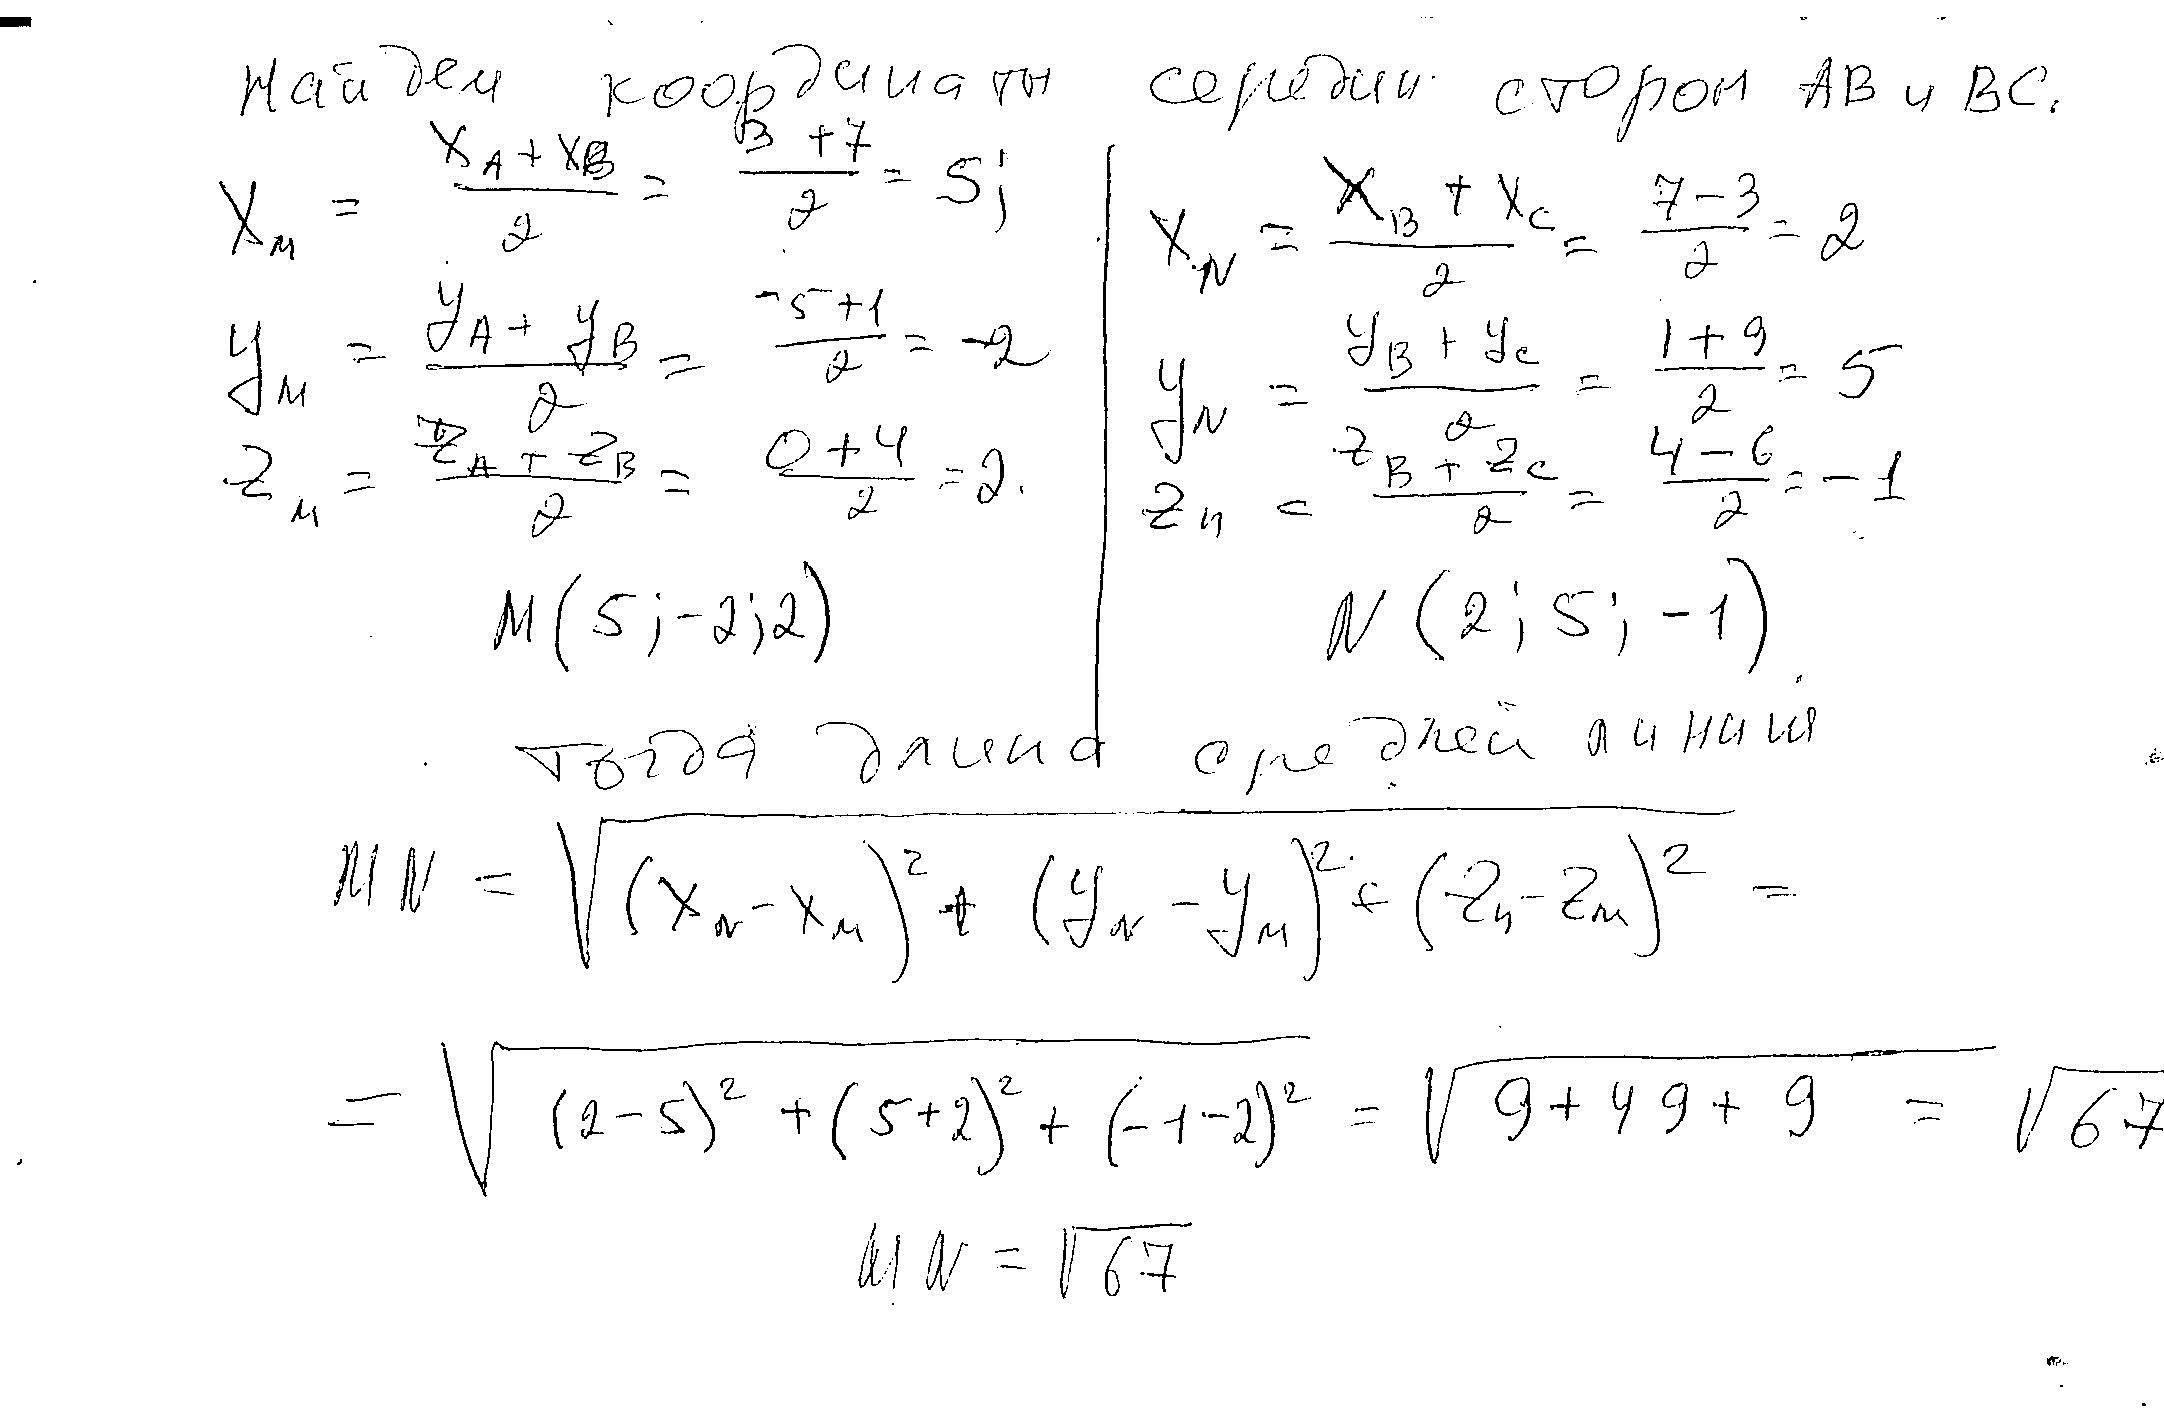 Найдем координаты середин сторон AB и BC.
x_M = (x_A + x_B)/2 = (3 + 7)/2 = 5;
y_M = (y_A + y_B)/2 = (-5 + 1)/2 = -2
z_M = (z_A + z_B)/2 = (0 + 4)/2 = 2.
M(5; -2; 2)
x_N = (x_B + x_C)/2 = (7 - 3)/2 = 2
y_N = (y_B + y_C)/2 = (1 + 9)/2 = 5
z_N = (z_B + z_C)/2 = (4 - 6)/2 = -1
N(2; 5; -1)
тогда длина средней линии
MN = √((x_N - x_M)² + (y_N - y_M)² + (z_N - z_M)²) =
= √((2-5)² + (5+2)² + (-1-2)²) = √(9+49+9) = √67
MN = √67